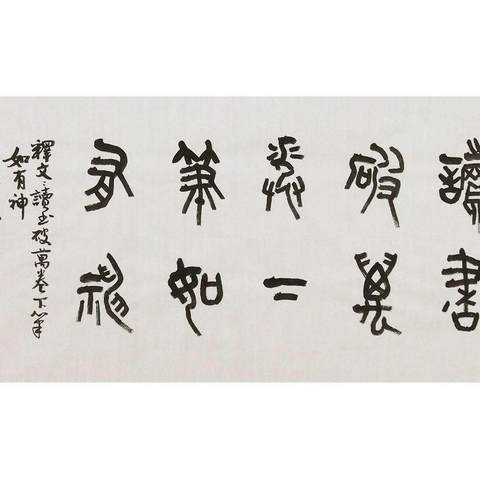 讀書
破萬
卷下
筆如
有神
釋文:讀书破萬卷下筆
如有神